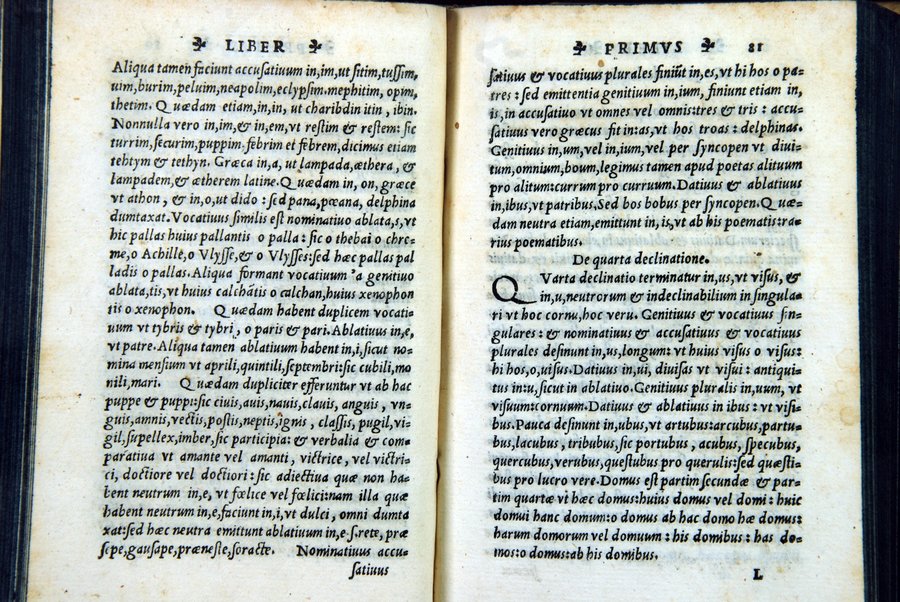 LIBER
Aliqua tamen faciunt accusatiuum in,im,ut sitim,tussim,
uim,burim,peluim,neapolim,eclypsim.mephitim, opim,
thetim. Quædam etiam,in,in, ut charibdin itin , ibin.
Nonnulla vero in,im,& in,em,vt restim & restem: sic
turrim,securim,puppim,febrim et febrem,dicimus etiam
tehtym & tethyn. Græca in,a, ut lampada,æthera, &
lampadem,& ætherem latine. Quædam in, on, græce
vt athon , & in,o,ut dido : sed pana,pœana, delphina
dumtaxat. Vocatiuus similis est nominatiuo ablata,s,vt
hic pallas huius pallantis o palla: sic o thebai o chre-
me, o Achille, o Vlysse,& o Vlysses:sed hæc pallas pal
ladis o pallas. Aliqua formant vocatiuum a genitiuo
ablata,tis,vt huius calchãtis o calchan,huius xenophon
tis o xenophon. Quædam habent duplicem vocati-
uum vt tybris & tybri , o paris & pari. Ablatiuus in,e,
vt patre. Aliqua tamen ablatiuum habent in,i,sicut no-
mina mensium vt aprili, quintili, septembri:sic cubili, mo
nili,mari. Quædam dupliciter efferuntur vt ab hac
puppe & puppi:sic ciuis,auis,nauis,clauis, anguis , vn-
guis,amnis,vectis,postis,neptis,ignis , classis, pugil,vi-
gil,supellex,imber,sic participia: & verbalia & com-
paratiua vt amante vel amanti, victrice , vel victri-
ci, doctiore vel doctiori: sic adiectiua quæ non ha-
bent neutrum in,e, vt fœlice vel fœlici:nam illa quæ
habent neutrum in,e,faciunt in,i,vt dulci, omni dumta
xat:sed hæc neutra emittunt ablatiuum in,e.s.rete, præ
sepe,gausape,præneste,soracte. Nominatiuus accu-
satiuus
PRIMVS 81
satiuus & vocatiuus plurales finiũt in,es,vt hi hos o pa-
tres : sed emittentia genitiuum in,ium, finiunt etiam in,
is,in accusatiuo vt omnes vel omnis:tres & tris : accu-
satiuus vero græcus fit in:as,vt hos troas : delphinas.
Genitiuus in,um,vel in,ium,vel per syncopen vt diui-
tum,omnium,boum,legimus tamen apud poetas alituum
pro alitum:currum pro curruum. Datiuus & ablatiuus
in,ibus,vt patribus. Sed bos bobus per syncopen. Quæ-
dam neutra etiam,emittunt in,is,vt ab his poematis:ra-
rius poematibus.
De quarta declinatione.
QVarta declinatio terminatur in,us,vt visus, &
in,u,neutrorum & indeclinabilium in singula-
ri vt hoc cornu, hoc veru. Genitiuus & vocatiuus sin-
gulares : & nominatiuus & accusatiuus & vocatiuus
plurales desinunt in,us,longum: vt huius visus o visus:
hi hos,o,uisus. Datiuus in,ui, diuisas vt visui : antiqui-
tus in:u,sicut in ablatiuo. Genitiuus pluralis in,uum, vt
visuum:cornuum. Datiuus & ablatiuus in ibus : vt visi-
bus. Pauca desinunt in,ubus,vt artubus:arcubus,partu-
bus,lacubus , tribubus, sic portubus , acubus, specubus,
quercubus,verubus,questubus pro querulis:sed quæsti-
bus pro lucro vere. Domus est partim secundæ & par-
tim quartæ vt hæc domus:huius domus vel domi : huic
domui hanc domum:o domus ab hac domo hæ domus:
harum domorum vel domuum : his domibus : has do-
mos:o domus:ab his domibus.
L